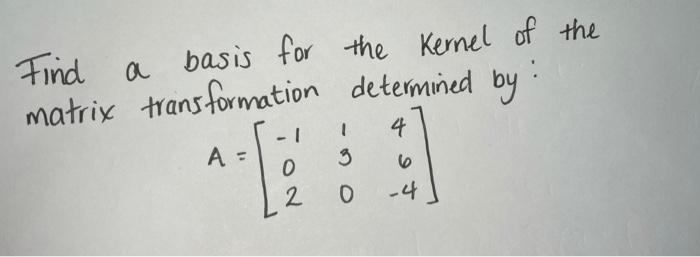 Find a basis for the Kernel of the
matrix transformation determined by:
A = [ -1 1 4
0 3 6
2 0 -4 ]